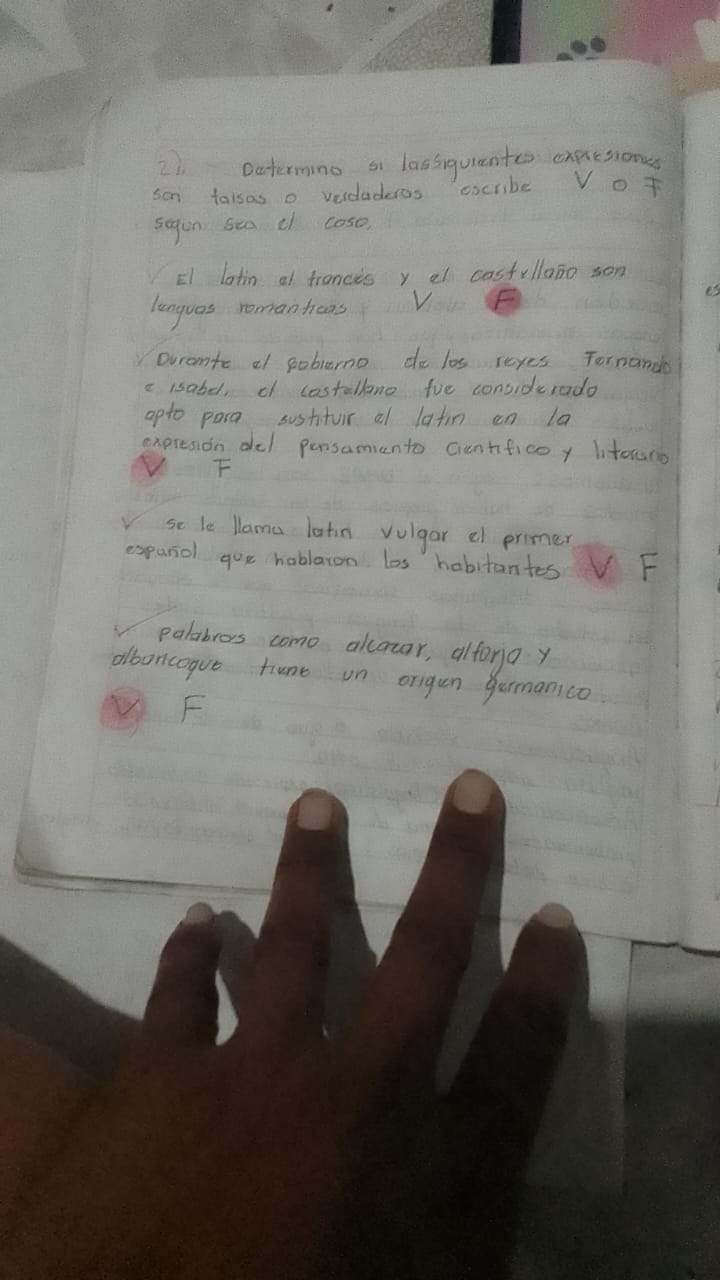 2). Determino si lassiguientes expresiones
son falsas o verdaderas escribe V o F
segun sea el caso.
✓ El latin el frances y el castellaño son
lenguas romanticas V F
✓ Durante el gobierno de los reyes Fernando
e isabel, el castellano fue considerado
apto para sustituir el latin en la
expresión del pensamiento cientifico y literario
V F
✓ se le llama latin vulgar el primer
español que hablaron los habitantes V F
✓ palabras como alcazar, alforja y
albaricoque tiene un origen germanico.
V F